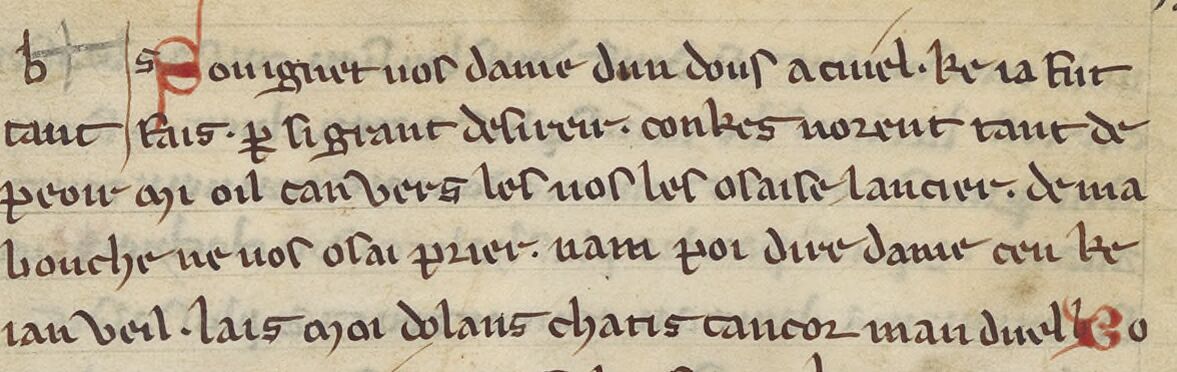 b s Pouignet uos dame dun dous acuiel. ke ia fut
tant fais. ꝑ si grant desireir. conkes norent tant de
peour mi oil can vers les uos les osaise lancier. de ma
bouche ne uos osai prier. nam poi dire dame ceu ke
ian veil. lais moi dolans chatis cancor man duel Co